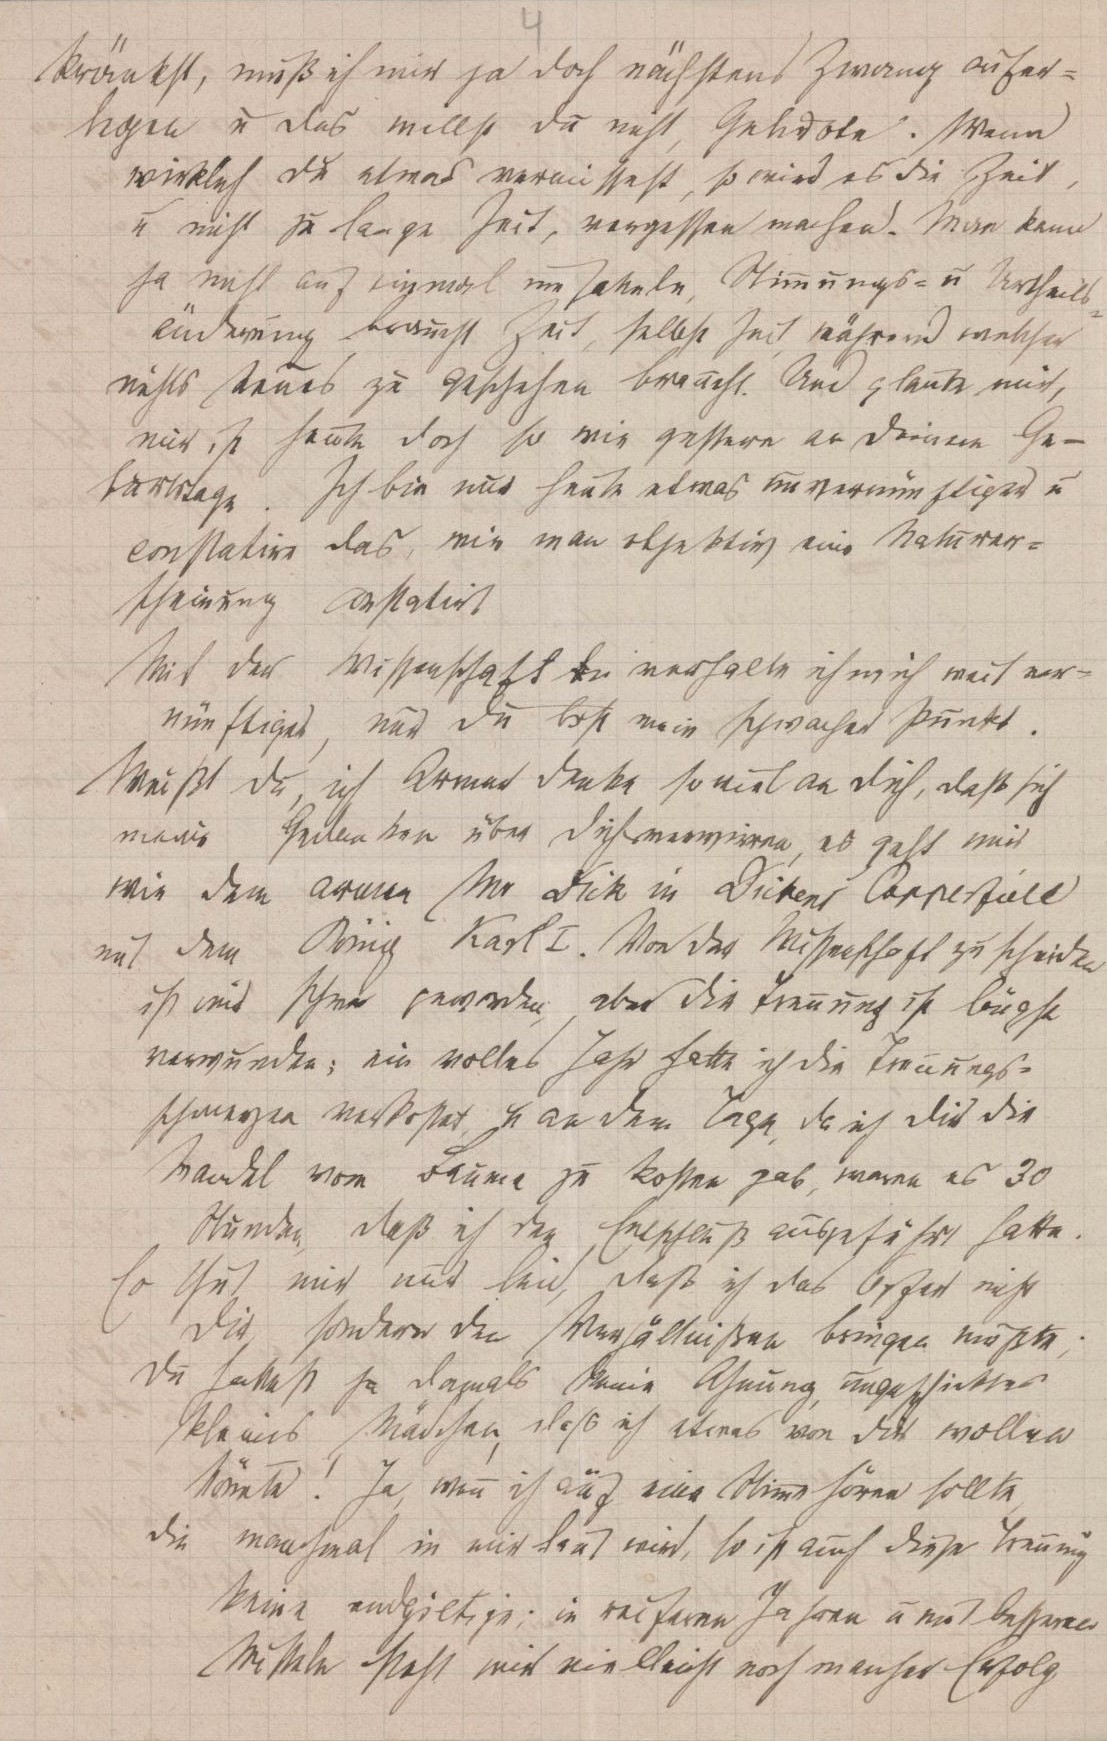 4
kränkst, muß ich mir ja doch nächstens Zwang aufer=
legen u das willst du nicht, Geliebte. Wenn
wirklich du etwas vermissest, so wird es die Zeit,
u nicht zu lange Zeit, vergessen machen. Man kann
ja nicht auf einmal umsatteln, Stimmungs= u Urtheils=
änderung braucht Zeit, selbst Zeit, während welcher
nichts Neues zu geschehen braucht. Und glaube mir,
mir ist heute doch so wie gestern an deinem Ge-
burtstage. Ich bin nur heute etwas unvernünftiger u
constatire das, wie man objektiv eine Naturer=
scheinung constatirt
Mit der Wissenschaft verhalte ich mich weit ver=
nünftiger, nur du bist mein schwacher Punkt.
Weißt du, ich Armer denke so viel an dich, daß sich
meine Gedanken über dich verwirren, es geht mir
wie dem armen Mr Dick in Dickens Copperfield
mit dem König Karl I. Von der Wissenschaft zu scheiden
ist mir schwer geworden, aber die Trennung ist längst
verwunden; ein volles Jahr hatte ich die Trennungs=
schmerzen verkostet u an dem Tage, da ich dir die
Mandel vom Baume zu kosten gab, waren es 30
Stunden, daß ich den Entschluß ausgeführt hatte.
Es thut mir nur leid, daß ich das Opfer nicht
dir, sondern den Verhältnißen bringen mußte;
du hattest ja damals keine Ahnung, ungeschicktes
kleines Mädchen, daß ich etwas von dir wollen
könnte! Ja, wenn ich auf eine Stimme hören sollte,
die manchmal in mir laut wird, so ist auch diese Trennung
keine endgiltige; in reiferen Jahren u mit besseren
Mitteln steht mir vielleicht noch mancher Erfolg